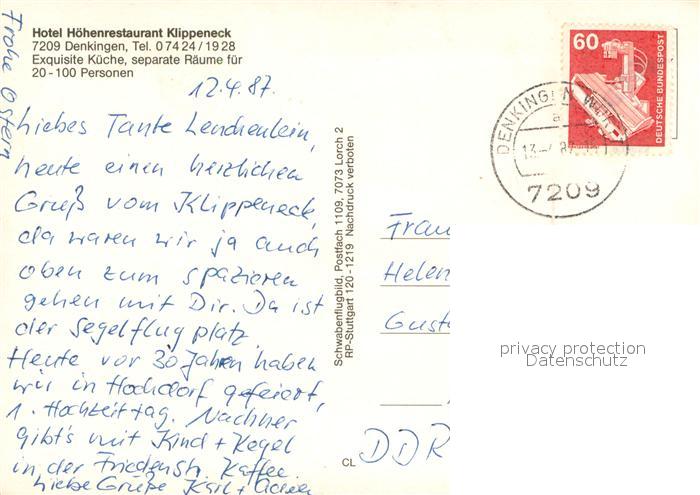 Frohe Ostern
Hotel Höhenrestaurant Klippeneck
7209 Denkingen, Tel. 07424/1928
Exquisite Küche, separate Räume für
20-100 Personen
12.4.87.
Liebes Tante Lenchenlein,
heute einen herzlichen
Gruß vom Klippeneck,
da waren wir ja auch
oben zum spazieren
gehen mit Dir. Da ist
der Segelflugplatz.
Heute vor 30 Jahren haben
wir in Hochdorf gefeiert,
1. Hochzeittag. Nachher
gibt's mit Kind + Kegel
in der Friedenstr. Kaffee.
Liebe Grüße Karl +
Schwabenflugbild, Postfach 1109, 7073 Lorch 2
RP-Stuttgart 120-1219 Nachdruck verboten
CL
60
DEUTSCHE BUNDESPOST
DENKINGEN
a
7209
Frau
Helen
Gust
DDR
privacy protection
Datenschutz